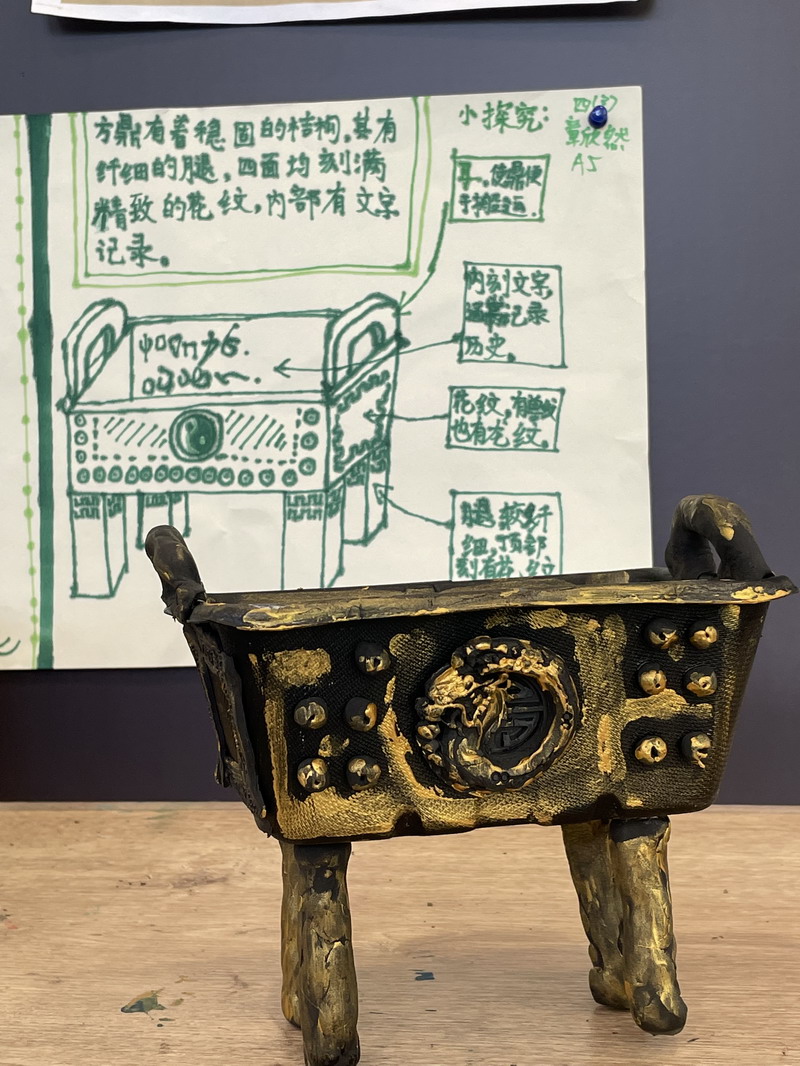 方鼎有着稳固的结构,其有
纤细的腿,四面均刻满
精致的花纹,内部有文字
记录。
小探究:
四(3)
章欣然
A5
耳,使鼎便
于搬运。
内刻文字,
通常记录
历史。
花纹,有兽纹
也有花纹。
腿较纤
细,顶部
刻有花纹